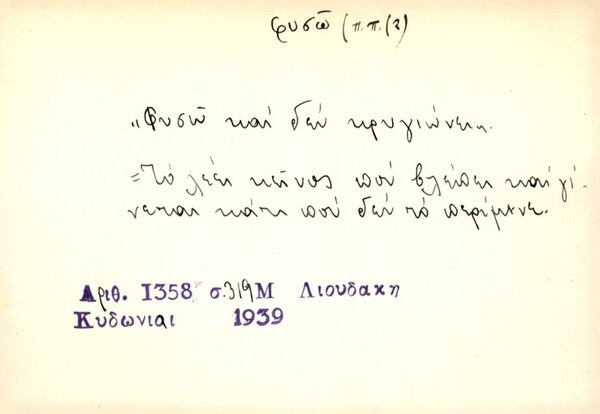 φυσῶ (π.π. (2)
„Φυσῶ καί δέν κρυγιώνει„.
=Τό λέει κεῖνος πού βλέπει καί γί-
νεται κάτι πού δέν τό περίμενε.
Αριθ. 1358 σ.319 Μ Λιουδακη
Κυδωνιαι 1939